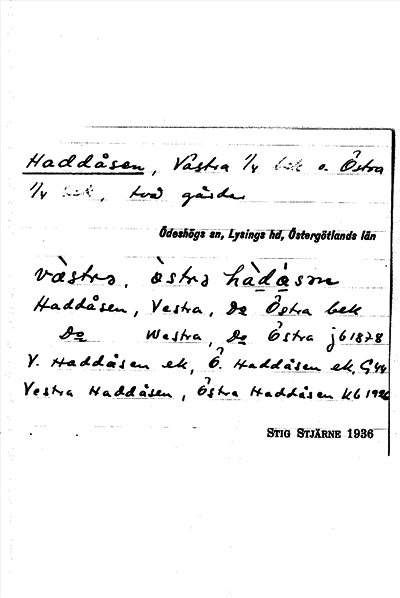 Haddåsen, Västra 1/4 bek o. Östra
1/4 bek, två gårdar
Ödeshögs sn, Lysings hd, Östergötlands län
vàstra, òstra hàdåsm
Haddåsen, Vestra, Do Östra bek
Do Westra, Do Östra jb 1878
V. Haddåsen ek, Ö. Haddåsen ek, G44
Vestra Haddåsen, Östra Haddåsen Kb 1926
STIG STJÄRNE 1936